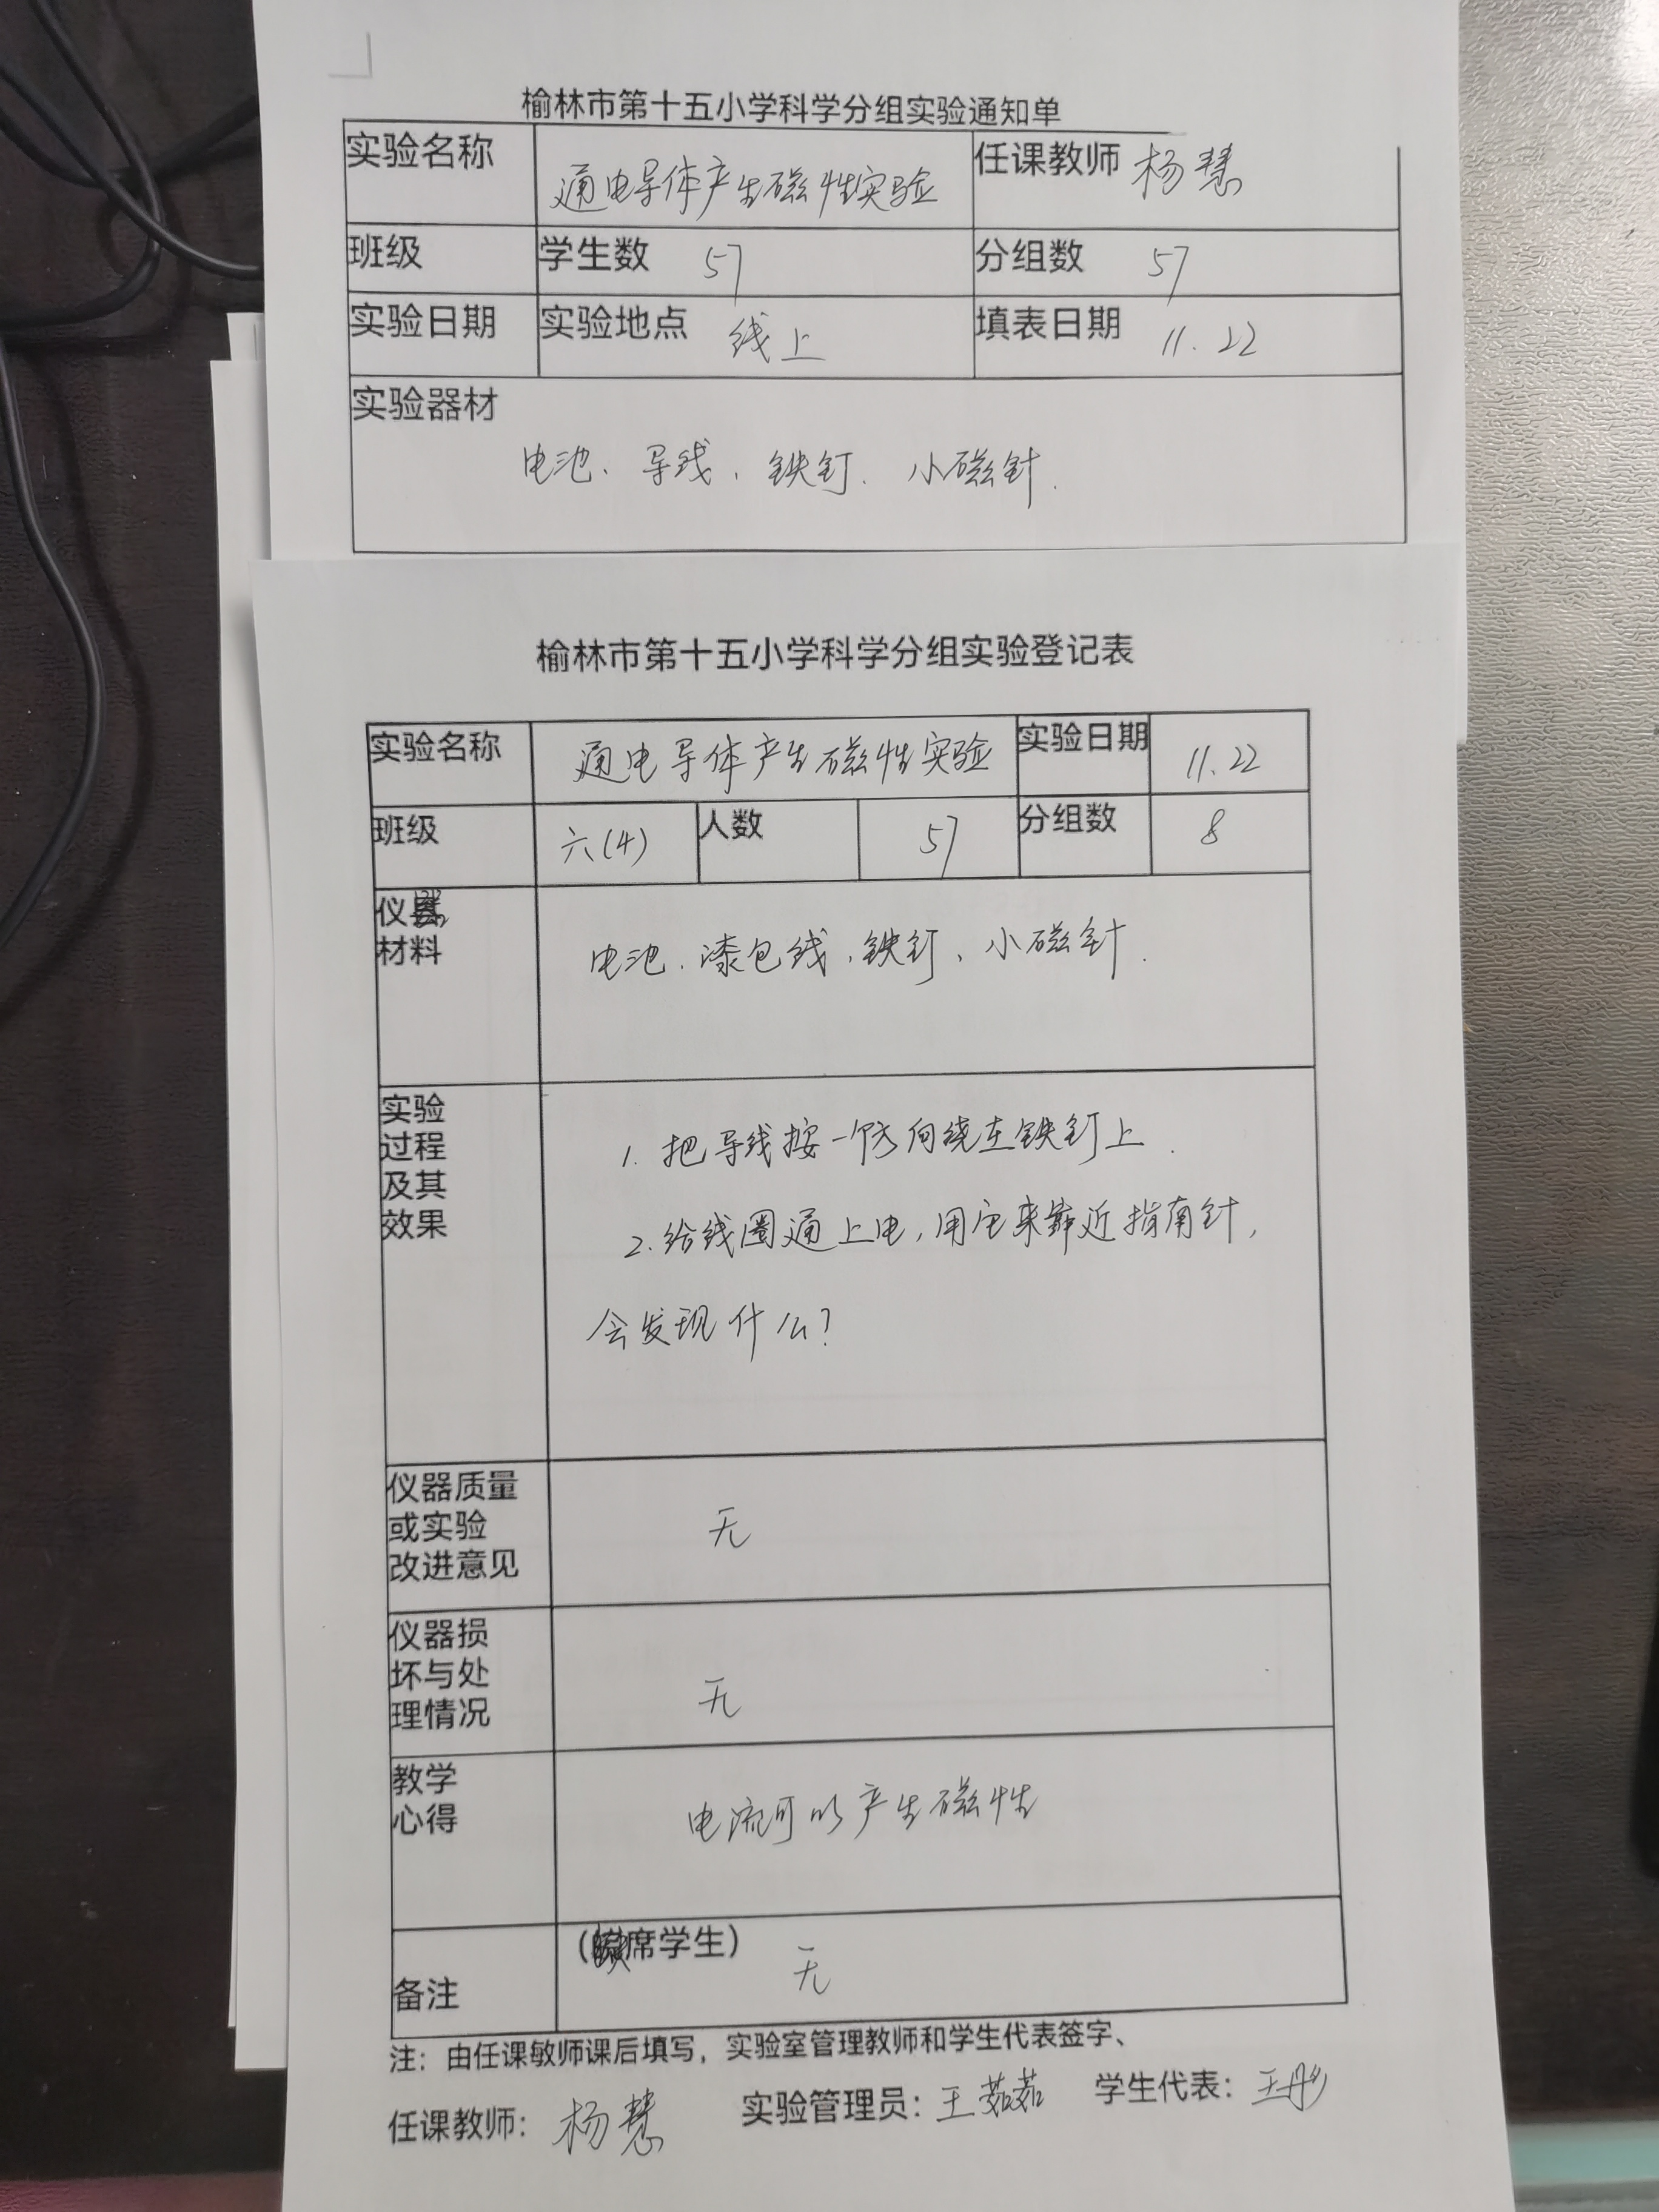 榆林市第十五小学科学分组实验通知单
实验名称 通电导体产生磁性实验 任课教师 杨慧
班级 学生数 57 分组数 57
实验日期 实验地点 线上 填表日期 11.22
实验器材
电池、导线、铁钉、小磁针.
榆林市第十五小学科学分组实验登记表
实验名称 通电导体产生磁性实验 实验日期 11.22
班级 六(4) 人数 57 分组数 8
仪器
材料 电池、漆包线、铁钉、小磁针.
实验
过程
及其
效果
1. 把导线按一个方向绕在铁钉上.
2. 给线圈通上电,用它来靠近指南针,
会发现什么?
仪器质量
或实验
改进意见
无
仪器损
坏与处
理情况
无
教学
心得
电流可以产生磁性
备注 (缺席学生) 无
注：由任课敏师课后填写，实验室管理教师和学生代表签字、
任课教师：杨慧 实验管理员：王茹茹 学生代表：王彤